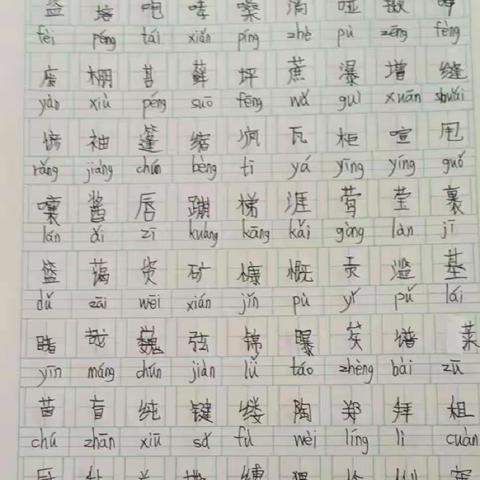 盔 培 咆 哮 嗓 淌 哑 揪 呻
fèi péng tái xiǎn píng zhè pù zēng fèng
废 棚 苔 藓 坪 蔗 瀑 增 缝
yán xiù péng suō fēng wǎ guì xuān shuǎi
檐 袖 篷 缩 疯 瓦 柜 喧 甩
rǎng jiàng chún bèng tī yá yīng yíng guǒ
嚷 酱 唇 蹦 梯 涯 莺 莹 裹
lán ǎi zī kuàng kāng kǎi gòng làn jī
篮 蔼 资 矿 慷 慨 贡 滥 基
dǔ zāi wēi xián jǐn pù yǐ pǔ lái
睹 哉 巍 弦 锦 曝 矣 谱 莱
yīn máng chún jiàn lǚ táo zhèng bài zū
茵 盲 纯 键 缕 陶 郑 拜 租
chú zhān xiū sǎ fù wèi líng lì cuàn